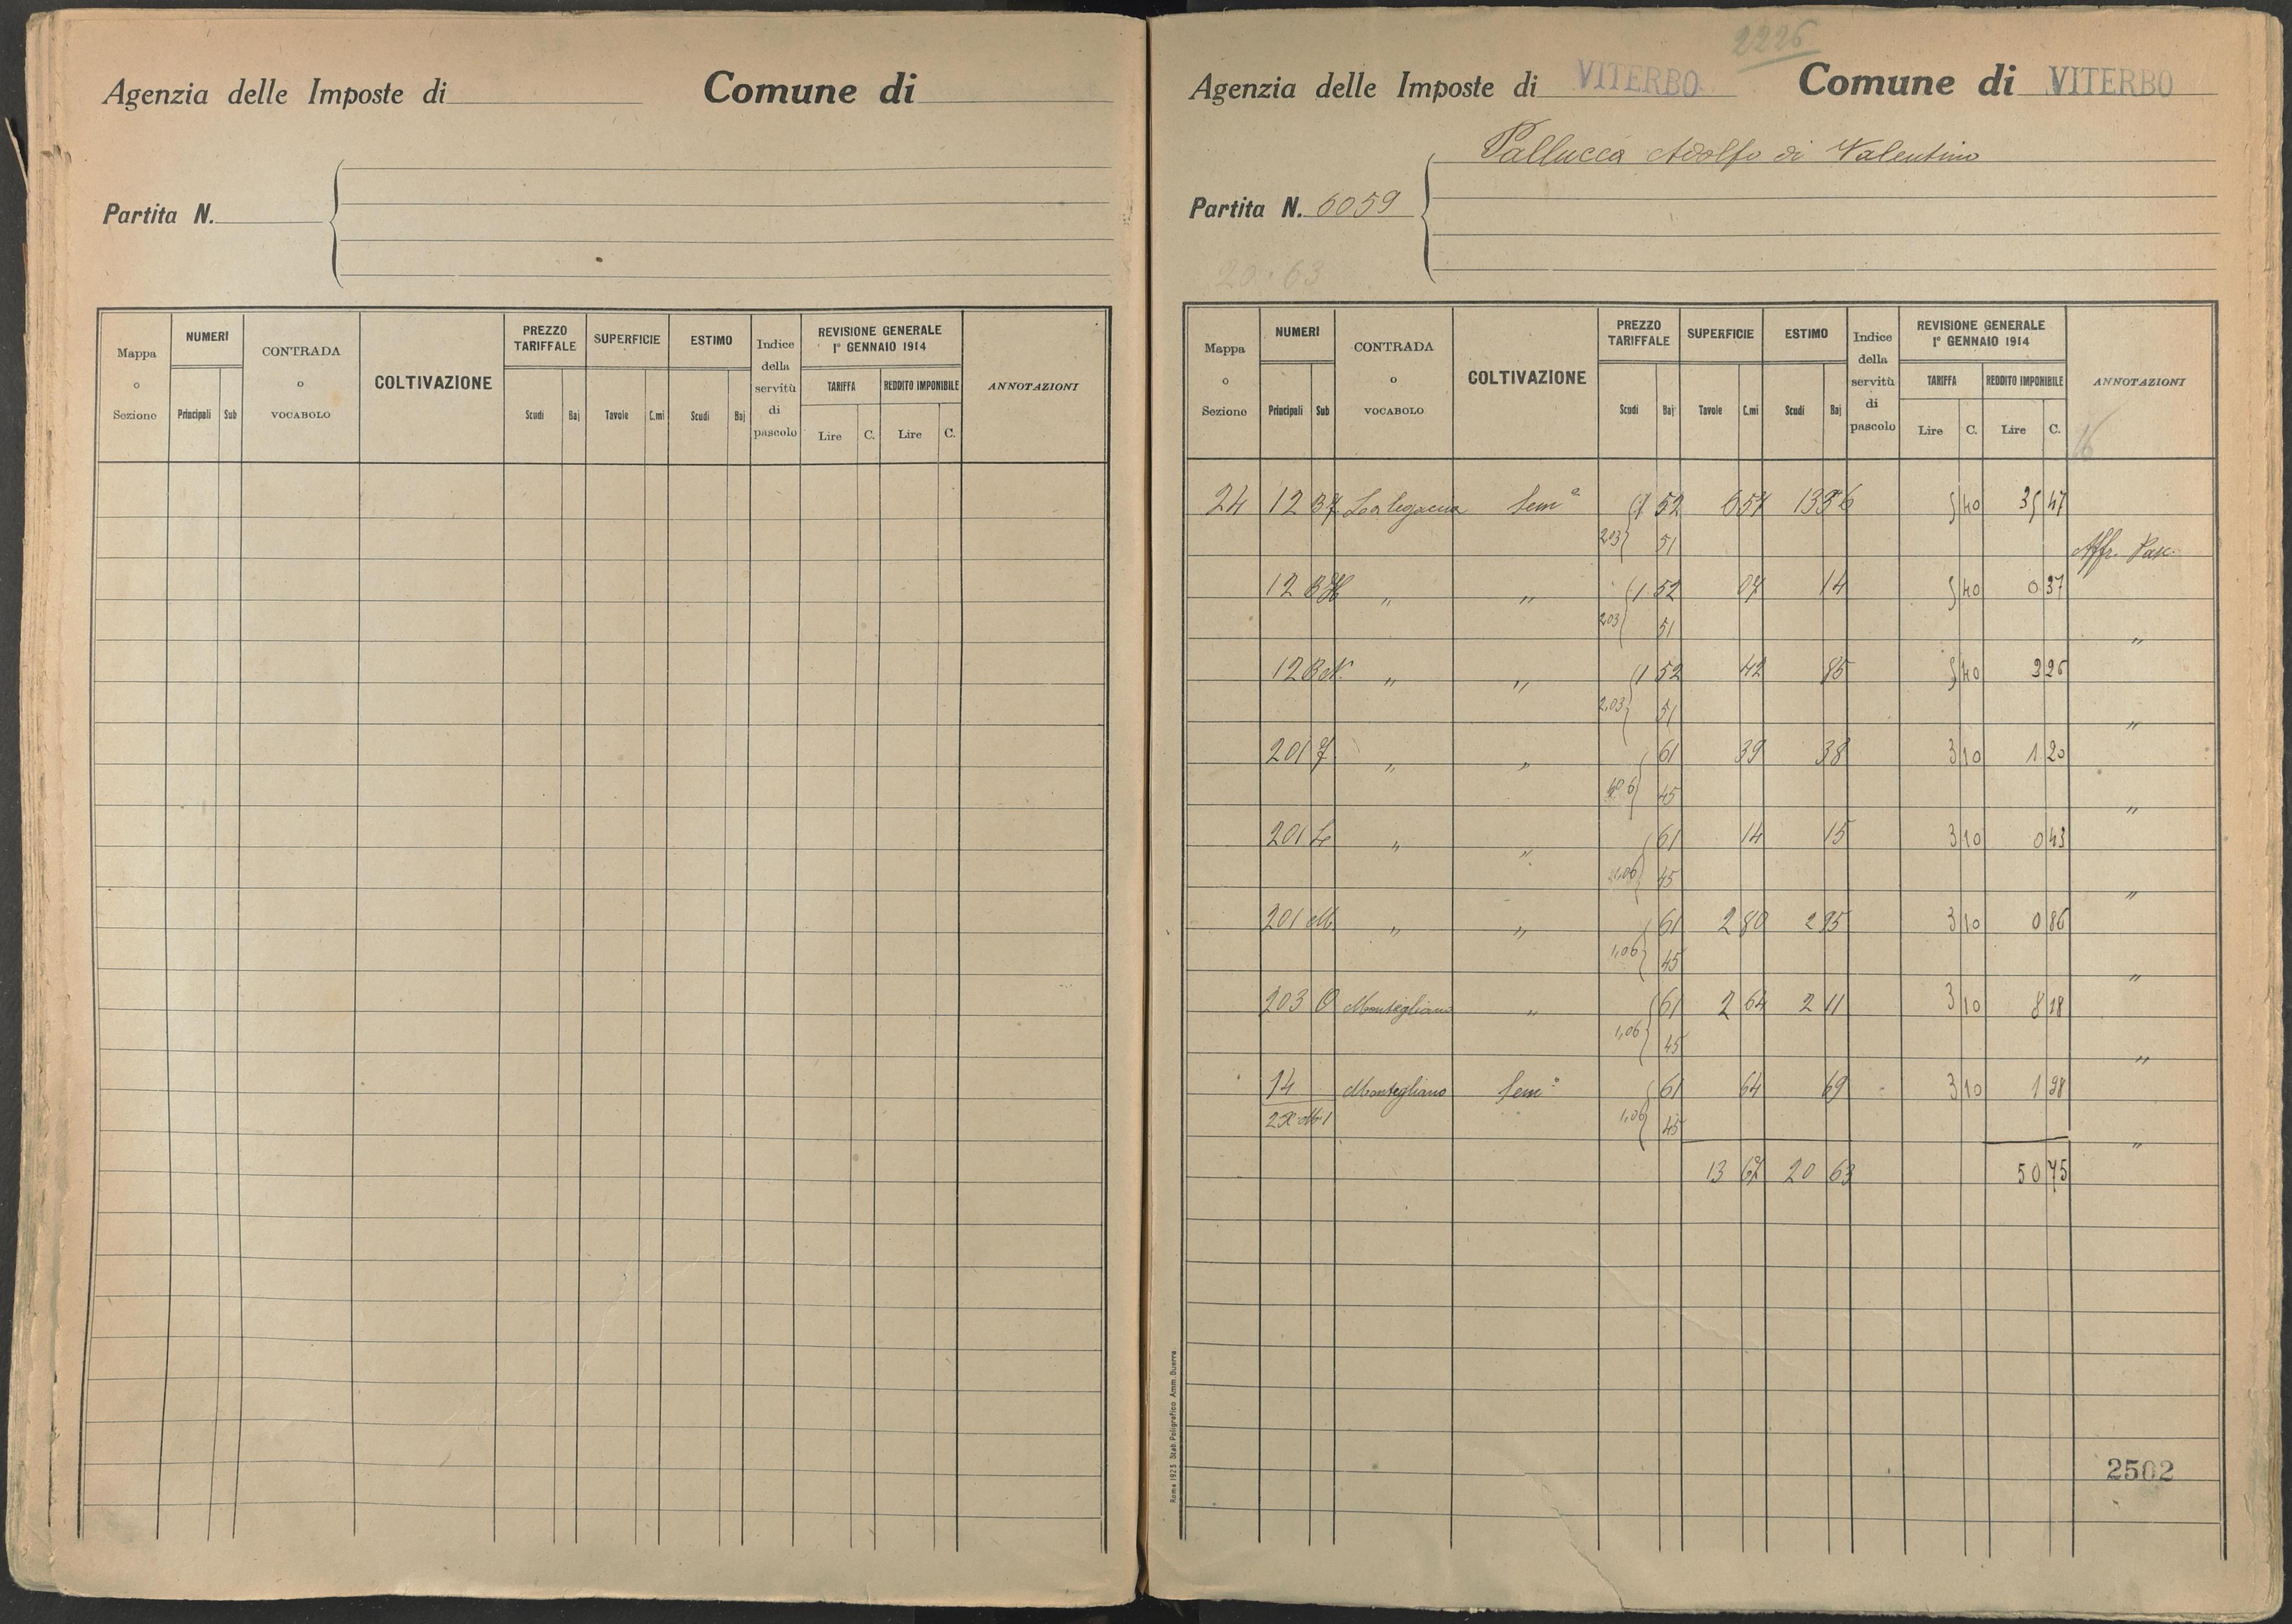 Agenzia delle Imposte di Comune di
Partita N.
Mappa o Sezione
NUMERI
Principali Sub
CONTRADA o VOCABOLO
COLTIVAZIONE
PREZZO TARIFFALE
Scudi Baj
SUPERFICIE
Tavole C.mi
ESTIMO
Scudi Baj
Indice della servitù di pascolo
REVISIONE GENERALE 1° GENNAIO 1914
TARIFFA REDDITO IMPONIBILE
Lire C. Lire C.
ANNOTAZIONI
2226
Agenzia delle Imposte di VITERBO Comune di VITERBO
Pallucca Adolfo di Valentino
Partita N. 6059
20.63
Mappa o Sezione
NUMERI
Principali Sub
CONTRADA o VOCABOLO
COLTIVAZIONE
PREZZO TARIFFALE
Scudi Baj
SUPERFICIE
Tavole C.mi
ESTIMO
Scudi Baj
Indice della servitù di pascolo
REVISIONE GENERALE 1° GENNAIO 1914
TARIFFA REDDITO IMPONIBILE
Lire C. Lire C.
ANNOTAZIONI
16
24 12 Sem° 1 52 6 57 13 36 5 40 35 47
203 51 Affr. Pasc.
12 " " 1 52 07 14 5 40 0 37
203 51 "
12 " " 1 52 42 85 5 40 2 26
2,03 51 "
201 " " 61 39 38 3 10 1 20
45 "
201 L " " 61 14 15 3 10 0 43
1,06 45 "
201 M " " 61 2 80 2 95 3 10 0 86
1,06 45 "
203 O Montegliano " 61 2 64 2 11 3 10 8 18
1,06 45 "
14 Montegliano Sem° 61 64 69 3 10 1 98
1,06 45 "
13 67 20 63 50 75
2502
Roma 1925 Stab. Poligrafico Amm. Guerra